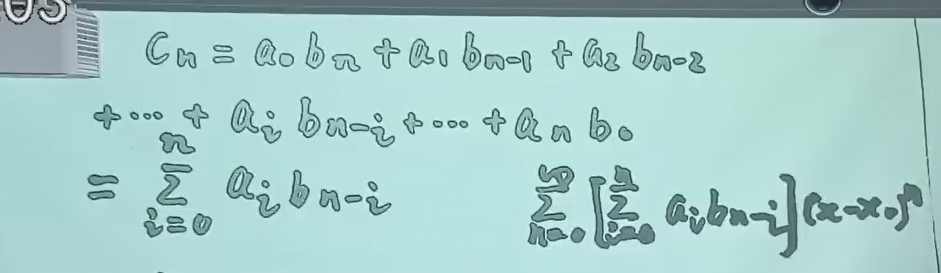 05
Cn = a₀bn + a₁bn-1 + a₂bn-2
+ ··· + aᵢbn-i + ··· + anb₀
= Σⁿᵢ₌₀ aᵢbn-i
Σ^∞ₙ₌₀ [Σⁿᵢ₌₀ aᵢbn-i](x-x₀)ⁿ